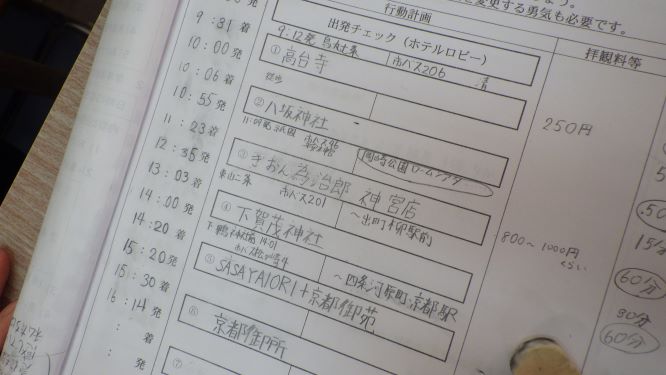 変する勇気も必要です。
行動計画
拝観料等
出発チェック（ホテルロビー）
9:31 着
9:12発 烏丸七条 市バス206 清
10:00 発
① 高台寺
徒歩
10:06 着
250円
② 八坂神社
10:55 発
11:23 着
岡崎公園ロームシアター
③ ぎおん為治郎 神宮店
12:35 発
東山二条 市バス201 ～出町柳駅前
13:03 着
④ 下賀茂神社
800～1000円
くらい
14:00 発
14:20 着
～四条河原町 京都駅
⑤ SASAYAIORI+京都御苑
15:20 発
15:30 着
⑥ 京都御所
16:14 発
: 着
⑦
: 発
15分
60分
30分
60分